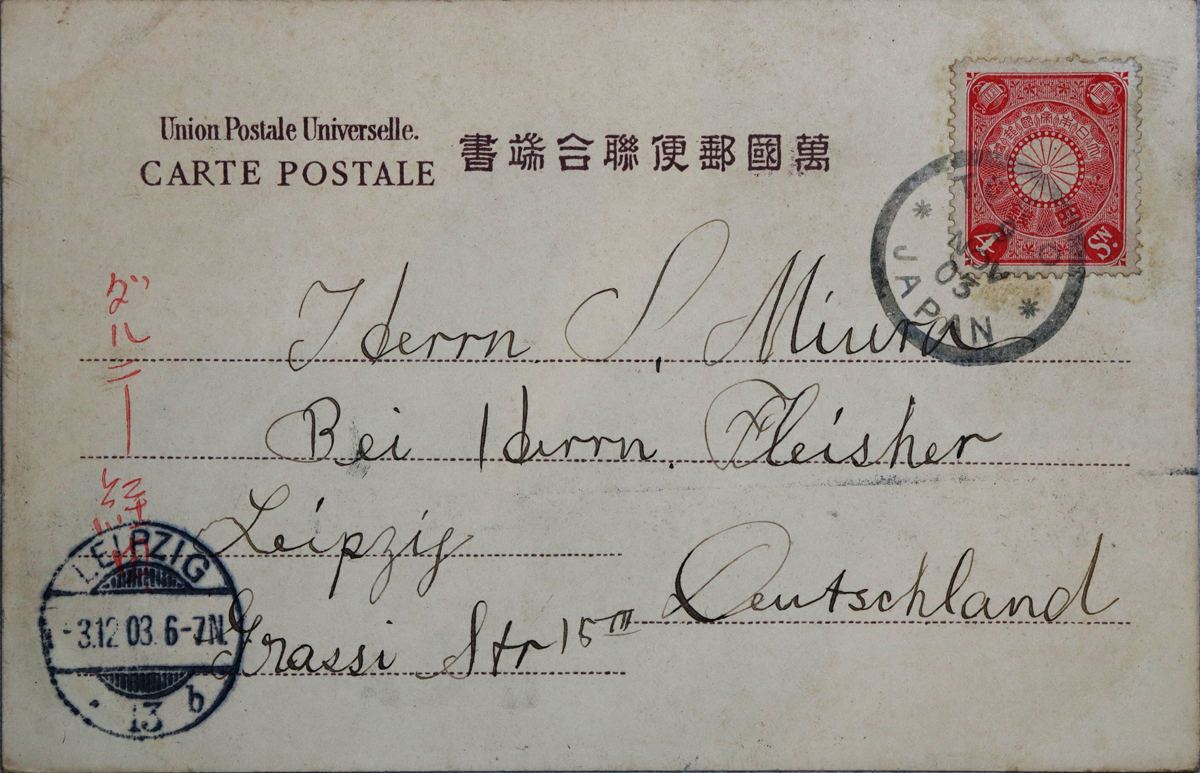 Union Postale Universelle.
CARTE POSTALE
書端合聯便郵國萬
4 Sn.
NOV
03
JAPAN
ダルニー経
Herrn. S. Miura
Bei Herrn. Fleisher
Leipzig
Deutschland
Grassi Str 15 III
LEIPZIG
-3.12 03. 6-7N.
13 b